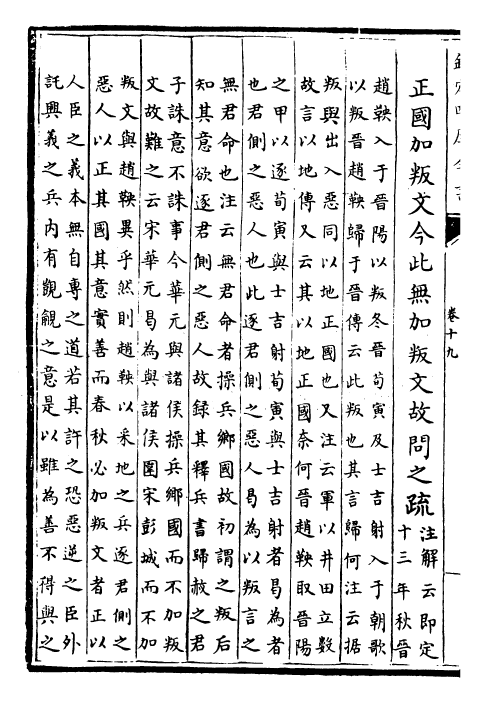 卷十九
正國加叛文今此無加叛文故問之疏
注解云即定
十三年秋晉
趙鞅入于晉陽以叛冬晉荀寅及士吉射入于朝歌
以叛晉趙鞅歸于晉傳云此叛也其言歸何注云據
叛與出入惡同以地正國也又注云軍以井田立數
故言以地傳又云其以地正國奈何晉趙鞅取晉陽
之甲以逐荀寅與士吉射荀寅與士吉射者曷為者
也君側之惡人也此逐君側之惡人曷為以叛言之
無君命也注云無君命者操兵鄉國故初謂之叛后
知其意欲逐君側之惡人故録其釋兵書歸赦之君
子誅意不誅事今華元與諸侯操兵鄉國而不加叛
文故難之云宋華元曷為與諸侯圍宋彭城而不加
叛文與趙鞅異乎然則趙鞅以采地之兵逐君側之
惡人以正其國其意實善而春秋必加叛文者正以
人臣之義本無自專之道若其許之恐惡逆之臣外
託興義之兵内有覬覦之意是以雖為善不得與之